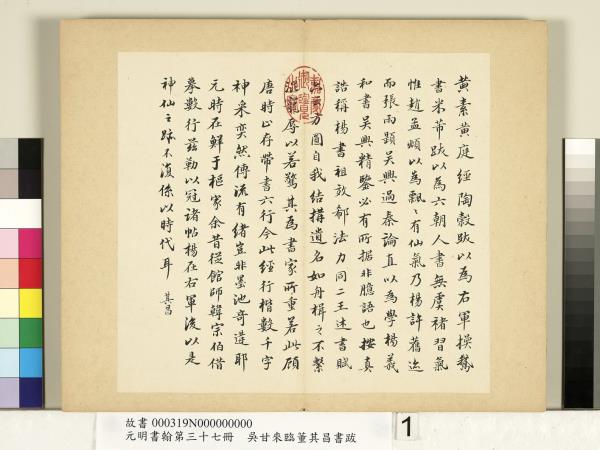 黃素黃庭經陶穀跋以為右軍換鵞
書米芾跋以為六朝人書無虞褚習氣
惟趙孟頫以為飄飄有仙氣乃楊許舊迹
而張雨題吳興過秦論直以為學楊羲
和書吳興精鑒必有所據非臆語也按真
誥稱楊書祖效郗法力同二王述書賦
方圓自我結構遺名如舟楫之不繫
混寵辱以若驚其為書家所重若此顧
唐時止存帶書六行今此經行楷數千字
神采奕然傳流有緒豈非墨池奇遘耶
元時在鮮于樞家余昔從館師韓宗伯借
摹數行茲勒以冠諸帖楊在右軍後以是
神仙之跡不復係以時代耳 其昌
故書 000319N000000000
元明書翰第三十七冊 吳甘來臨董其昌書跋
1